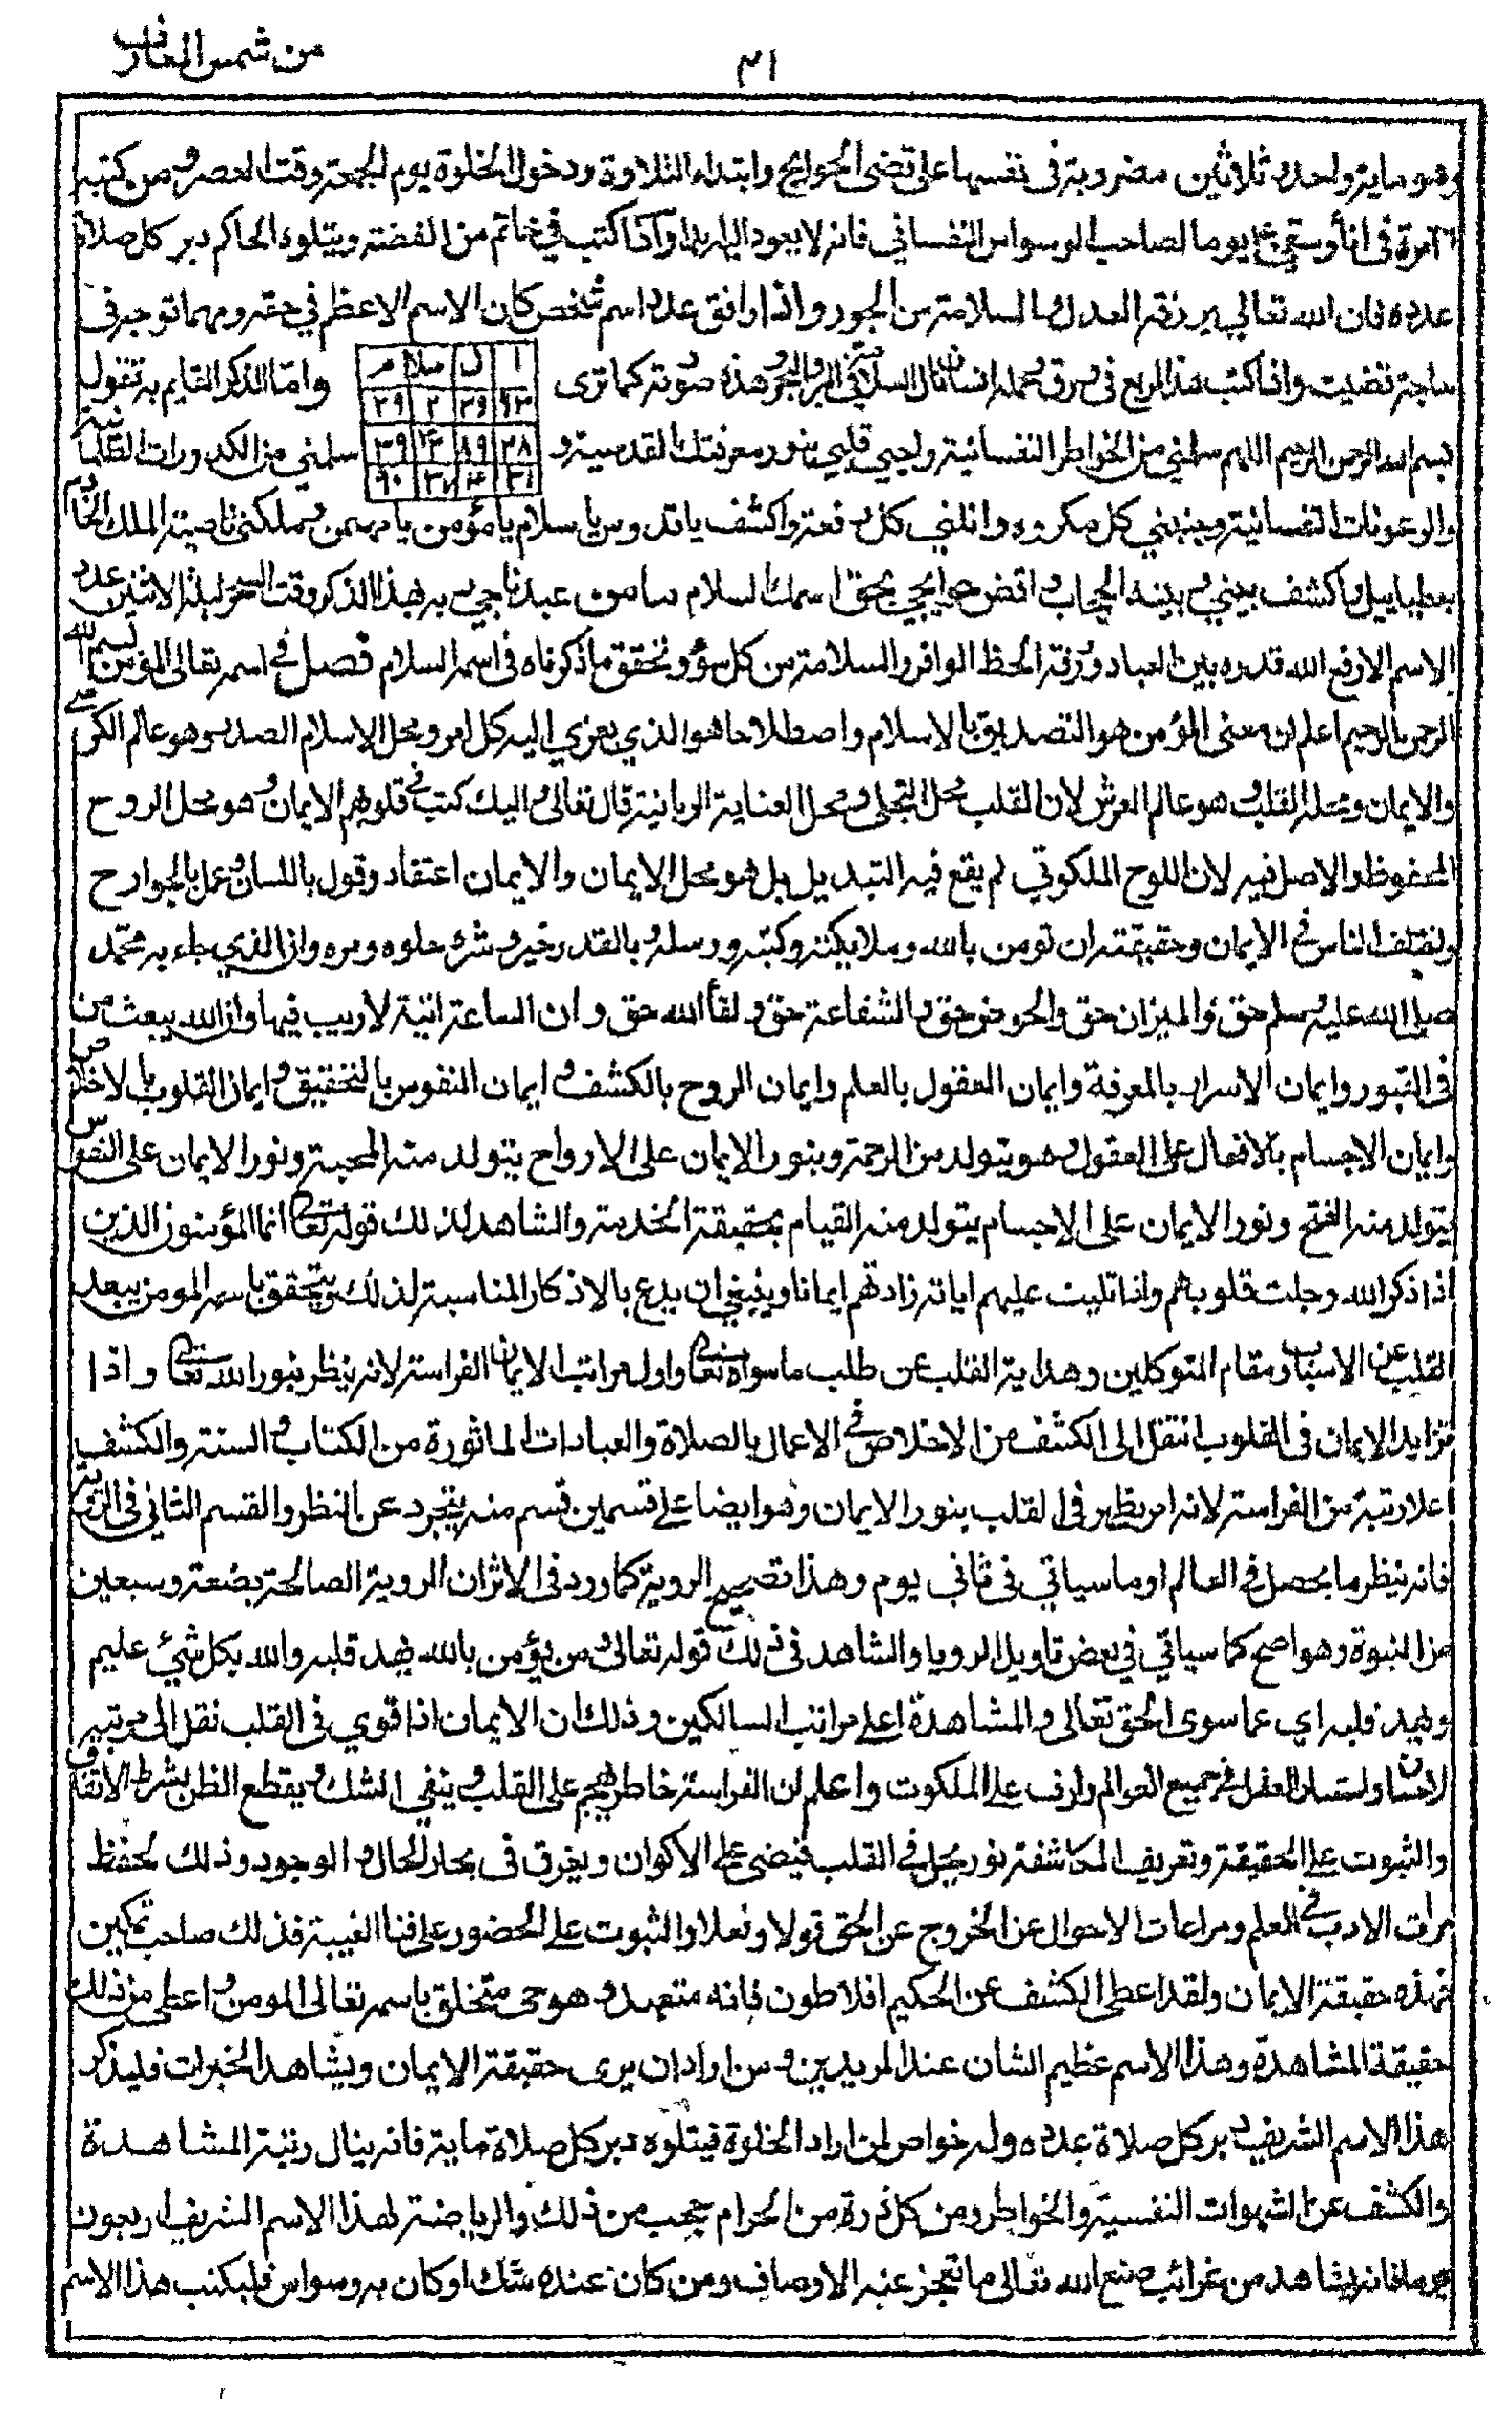 من شمس المعارف
٣١
وهو ماية واحد وثلاثين مضروبة في نفسها على تقضى الحوايج وابتداء التلاوة ودخول الخلوة يوم الجمعة وقت العصر ومن كتبه
مرة في اناء وسقى يوما لصاحب الوسواس النفساني فانه لا يعود اليه ابدا واذا كتب في خاتم من الفضة ويتلوه الحاكم دبر كل صلاة
عدده فان الله تعالى يرزقه العدل والسلامة من الجور واذا وافق عدد اسم شخص كان الاسم الاعظم في حقه ومهما توجه في
حاجة قضيت واذا كتب هذا المربع في رق وحمله انسان نال السلامة في البر والبحر وهذه صورته كما ترى
ا ل سلا م
٣٩ ٢
٣٨ ٨٩ ٣٩
٩٠
واما الذكر القايم به تقول
بسم الله الرحمن الرحيم اللهم سلمني من الخواطر النفسانية واحيي قلبي بنور معرفتك القدسية و سلمني من الكدورات الظلمانية
والرعونات النفسانية وجنبني كل مكروه وانلني كل رفعة واكشف ياقدوس يا سلام يا مؤمن يا مهيمن وملكني ناصية الملك الخادم
بعطياييل واكشف بيني وبينه الحجاب واقض حوايجي بحق اسمك السلام ما من عبد ناجى ربه بهذا الذكر وقت السحر ليلة الاثنين عدد
الاسم الا رفع الله قدره بين العباد ورزقه الحظ الوافر والسلامة من كل سوء وتحقق ماذكرناه في اسمه السلام فصل في اسمه تعالى المؤمن بسم الله
الرحمن الرحيم اعلم ان معنى المؤمن هو التصديق بالاسلام واصطلاحا هو الذي يعزي اليه كل امر ومحل الاسلام الصدر وهو عالم الكرسي
والايمان ومحله القلب وهو عالم العرش لان القلب محل التجلي ومحل العناية الربانية قال تعالى اوليك كتب في قلوبهم الايمان وهو محل الروح
المحفوظ والاصل فيه لان اللوح الملكوتي لم يقع فيه التبديل بل هو محل الايمان والايمان اعتقاد وقول باللسان وعمل بالجوارح
واختلف الناس في الايمان وحقيقته ان تومن بالله وملايكته وكتبه ورسله وبالقدر خيره وشره حلوه ومره وان الذي جاء به محمد
صلى الله عليه وسلم حق والميزان حق والحوض حق والشفاعة حق ولقاء الله حق وان الساعة اتية لا ريب فيها وان الله يبعث من
في القبور وايمان الاسرار بالمعرفة وايمان العقول بالعلم وايمان الروح بالكشف وايمان النفوس بالتحقيق وايمان القلوب بالاخلاص
وايمان الاجسام بالافعال على العقول وهو يتولد من الرحمة وبنور الايمان على الارواح يتولد منه المحبة ونور الايمان على النفوس
يتولد منه الفتح ونور الايمان على الاجسام يتولد منه القيام بحقيقة الخدمة والشاهد لذلك قوله تعالى انما المؤمنون الذين
اذا ذكر الله وجلت قلوبهم واذا تليت عليهم اياته زادتهم ايمانا وينبغي ان يدع بالاذكار المناسبة لذلك ويتحقق باسمه المومن يبعد
القلب عن الاسباب ومقام المتوكلين وهداية القلب عن طلب ما سواه تعالى واول مراتب الايمان الفراسة لانه ينظر بنور الله تعالى واذا
تزايد الايمان في القلوب انتقل الى الكشف من الاخلاص في الاعمال بالصلاة والعبادات الماثورة من الكتاب والسنة والكشف
اعلا رتبة من الفراسة لانه امر يظهر في القلب بنور الايمان وهو ايضا على قسمين قسم منه يتجرد عن النظر والقسم الثاني في الروية
فانه ينظر ما يحصل في العالم او ما سياتي في ثاني يوم وهذا تصحيح الروية كما ورد في الاثر ان الروية الصالحة بضعة وسبعين
من النبوة وهو اصح كما سياتي في بعض تاويل الرويا والشاهد في ذلك قوله تعالى ومن يؤمن بالله يهد قلبه والله بكل شيء عليم
ويهد قلبه اي عما سوى الحق تعالى والمشاهدة اعلى مراتب السالكين وذلك ان الايمان اذا قوي في القلب نقل الى مرتبة
الاحسان في جميع العوالم على الملكوت واعلم ان الفراسة خاطر يهجم على القلب وينفي الشك ويقطع الظن بشرط الاتفاق
والثبوت على الحقيقة وتعريف المكاشفة نور يحل في القلب فيضى على الاكوان ويغرق في بحار الحال والوجود وذلك لحفظ
مرات الادب في العلم ومراعات الاحوال عن الخروج عن الحق قولا وفعلا والثبوت على الحضور على فنا الغيبة فذلك صاحب تمكين
فهذه حقيقة الايمان ولقد اعطى الكشف عن الحكيم افلاطون فانه متعبد وهو حى متخلق باسمه تعالى المومن واعلى من ذلك
حقيقة المشاهدة وهذا الاسم عظيم الشان عند المريدين ومن اراد ان يرى حقيقة الايمان ويشاهد الخيرات فليذكر
هذا الاسم الشريف دبر كل صلاة عدده وله خواص لمن اراد الخلوة فيتلوه دبر كل صلاة ماية فانه ينال رتبة المشاهدة
والكشف عن الشهوات النفسية والخواطر ومن كل ذرة من الحرام يحجب من ذلك والرياضة لهذا الاسم الشريف اربعون
يوما فانه يشاهد من غرائب صنع الله تعالى ما تعجز عنه الاوصاف ومن كان عنده شك او كان به وسواس فليكتب هذا الاسم